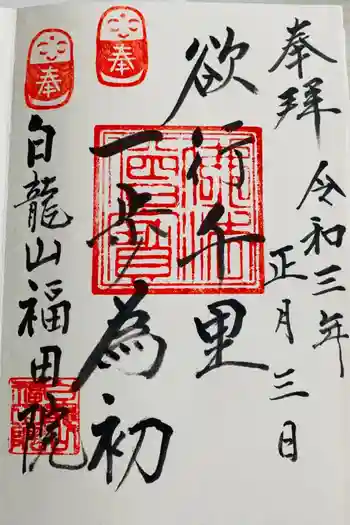 奉拝
令和三年
正月三日
欲行千里
一歩為初
白龍山福田院
奉
奉